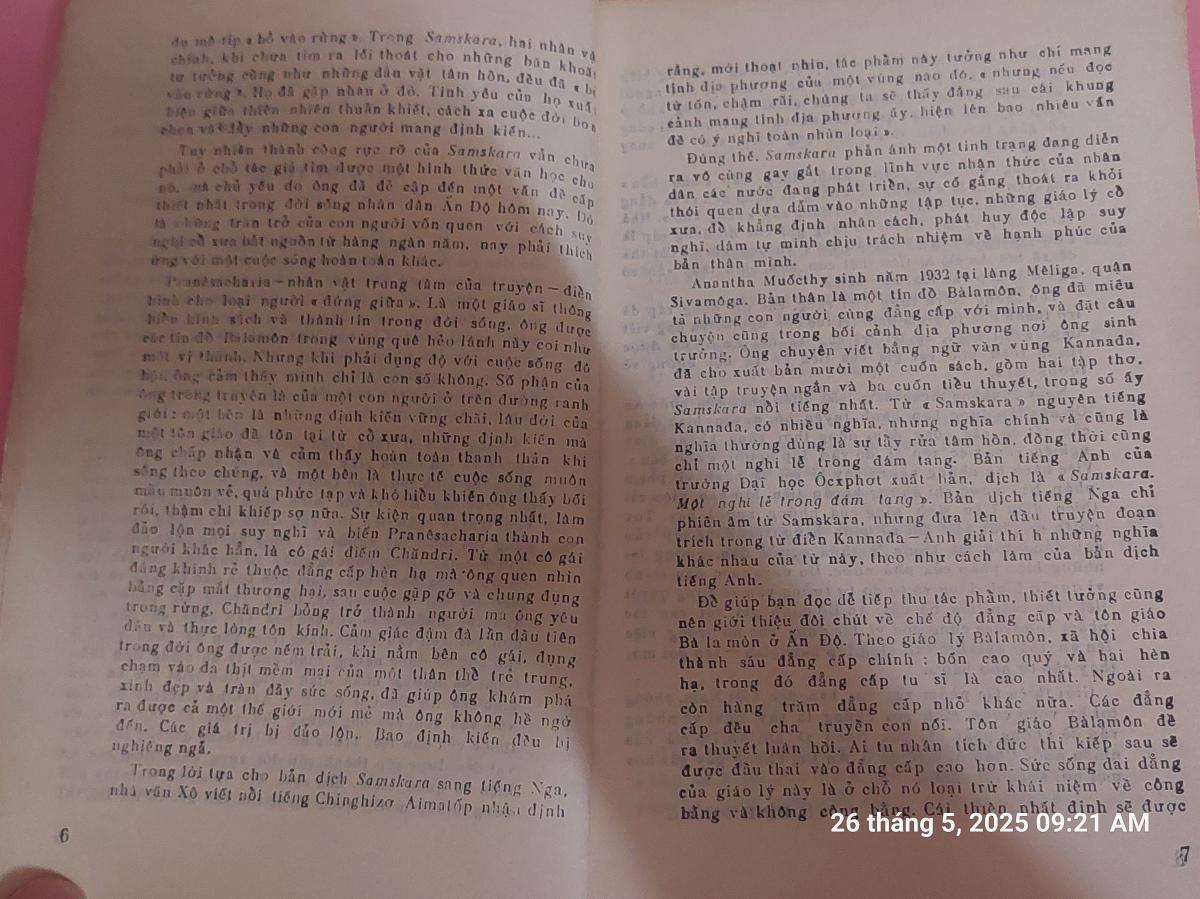 dụ mô-típ « bỏ vào rừng ». Trong Samskara, hai nhân vậ
chính, khi chưa tìm ra lối thoát cho những băn khoă
tư tưởng cũng như những dằn vặt tâm hồn, đều đã « b
vào rừng ». Họ đã gặp nhau ở đó. Tình yêu của họ xuấ
hiện giữa thiên nhiên thuần khiết, cách xa cuộc đời bon
chen và đầy những con người mang định kiến...
Tuy nhiên thành công rực rỡ của Samskara vẫn chưa
phải ở chỗ tác giả tìm được một hình thức văn học cho
nó, mà chủ yếu do ông đã đề cập đến một vấn đề cấp
thiết nhất trong đời sống nhân dân Ấn Độ hôm nay. Đó
là những trăn trở của con người vốn quen với cách suy
nghĩ cổ xưa bắt nguồn từ hàng ngàn năm, nay phải thích
ứng với một cuộc sống hoàn toàn khác.
Pranêsacharia — nhân vật trung tâm của truyện — điển
hình cho loại người « đứng giữa ». Là một giáo sĩ thông
hiểu kinh sách và thành tín trong đời sống, ông được
các tín đồ Bàlamôn trong vùng quê hẻo lánh này coi như
một vị thánh. Nhưng khi phải đụng độ với cuộc sống
ông cảm thấy mình chỉ là con số không. Số phận của
ông trong truyện là của một con người ở trên đường ranh
giới : một bên là những định kiến vững chãi, lâu đời của
một tôn giáo đã tồn tại từ cổ xưa, những định kiến mà
ông chấp nhận và cảm thấy hoàn toàn thanh thản khi
sống theo chúng, và một bên là thực tế cuộc sống muôn
màu muôn vẻ, quá phức tạp và khó hiểu khiến ông thấy bối
rối, thậm chí khiếp sợ nữa. Sự kiện quan trọng nhất, làm
đảo lộn mọi suy nghĩ và biến Pranêsacharia thành con
người khác hẳn, là cô gái điếm Chănđri. Từ một cô gái
đáng khinh rẻ thuộc đẳng cấp hèn hạ mà ông quen nhìn
bằng cặp mắt thương hại, sau cuộc gặp gỡ và chung đụng
trong rừng, Chănđri bỗng trở thành người mà ông yêu
dấu và thực lòng tôn kính. Cảm giác đậm đà lần đầu tiên
trong đời ông được nếm trải, khi nằm bên cô gái, đụng
chạm vào da thịt mềm mại của một thân thể trẻ trung,
xinh đẹp và tràn đầy sức sống, đã giúp ông khám phá
ra được cả một thế giới mới mẻ mà ông không hề ngờ
đến. Các giá trị bị đảo lộn. Bao định kiến đều bị
nghiêng ngả.
Trong lời tựa cho bản dịch Samskara sang tiếng Nga,
nhà văn Xô viết nổi tiếng Chinghizơ Aimatốp nhận định
6
rằng, mới thoạt nhìn, tác phẩm này tưởng như chỉ mang
tính địa phương của một vùng nào đó, « nhưng nếu đọc
từ tốn, chậm rãi, chúng ta sẽ thấy đằng sau cái khung
cảnh mang tính địa phương ấy, hiện lên bao nhiêu vấn
đề có ý nghĩ toàn nhân loại ».
Đúng thế. Samskara phản ánh một tình trạng đang diễn
ra vô cùng gay gắt trong lĩnh vực nhận thức của nhân
dân các nước đang phát triển, sự cố gắng thoát ra khỏi
thói quen dựa dẫm vào những tập tục, những giáo lý cổ
xưa, để khẳng định nhân cách, phát huy độc lập suy
nghĩ, dám tự mình chịu trách nhiệm về hạnh phúc của
bản thân mình.
Anantha Muốcthy sinh năm 1932 tại làng Mêliga, quận
Sivamôga. Bản thân là một tín đồ Bàlamôn, ông đã miêu
tả những con người cùng đẳng cấp với mình, và đặt câu
chuyện cũng trong bối cảnh địa phương nơi ông sinh
trưởng. Ông chuyên viết bằng ngữ văn vùng Kannada,
đã cho xuất bản mười một cuốn sách, gồm hai tập thơ,
vài tập truyện ngắn và ba cuốn tiểu thuyết, trong số ấy
Samskara nổi tiếng nhất. Từ « Samskara » nguyên tiếng
Kannada, có nhiều nghĩa, nhưng nghĩa chính và cũng là
nghĩa thường dùng là sự tẩy rửa tâm hồn, đồng thời cũng
chỉ một nghi lễ trong đám tang. Bản tiếng Anh của
trường Đại học Ôcxphơt xuất bản, dịch là « Samskara.
Một nghi lễ trong đám tang ». Bản dịch tiếng Nga chỉ
phiên âm từ Samskara, nhưng đưa lên đầu truyện đoạn
trích trong từ điển Kannada — Anh giải thí h những nghĩa
khác nhau của từ này, theo như cách làm của bản dịch
tiếng Anh.
Để giúp bạn đọc dễ tiếp thu tác phẩm, thiết tưởng cũng
nên giới thiệu đôi chút về chế độ đẳng cấp và tôn giáo
Bà la môn ở Ấn Độ. Theo giáo lý Bàlamôn, xã hội chia
thành sáu đẳng cấp chính : bốn cao quý và hai hèn
hạ, trong đó đẳng cấp tu sĩ là cao nhất. Ngoài ra
còn hàng trăm đẳng cấp nhỏ khác nữa. Các đẳng
cấp đều cha truyền con nối. Tôn giáo Bàlamôn đề
ra thuyết luân hồi. Ai tu nhân tích đức thì kiếp sau sẽ
được đầu thai vào đẳng cấp cao hơn. Sức sống dai dẳng
của giáo lý này là ở chỗ nó loại trừ khái niệm về công
bằng và không công bằng. Cái thiện nhất định sẽ được
26 tháng 5, 2025 09:21 AM
7